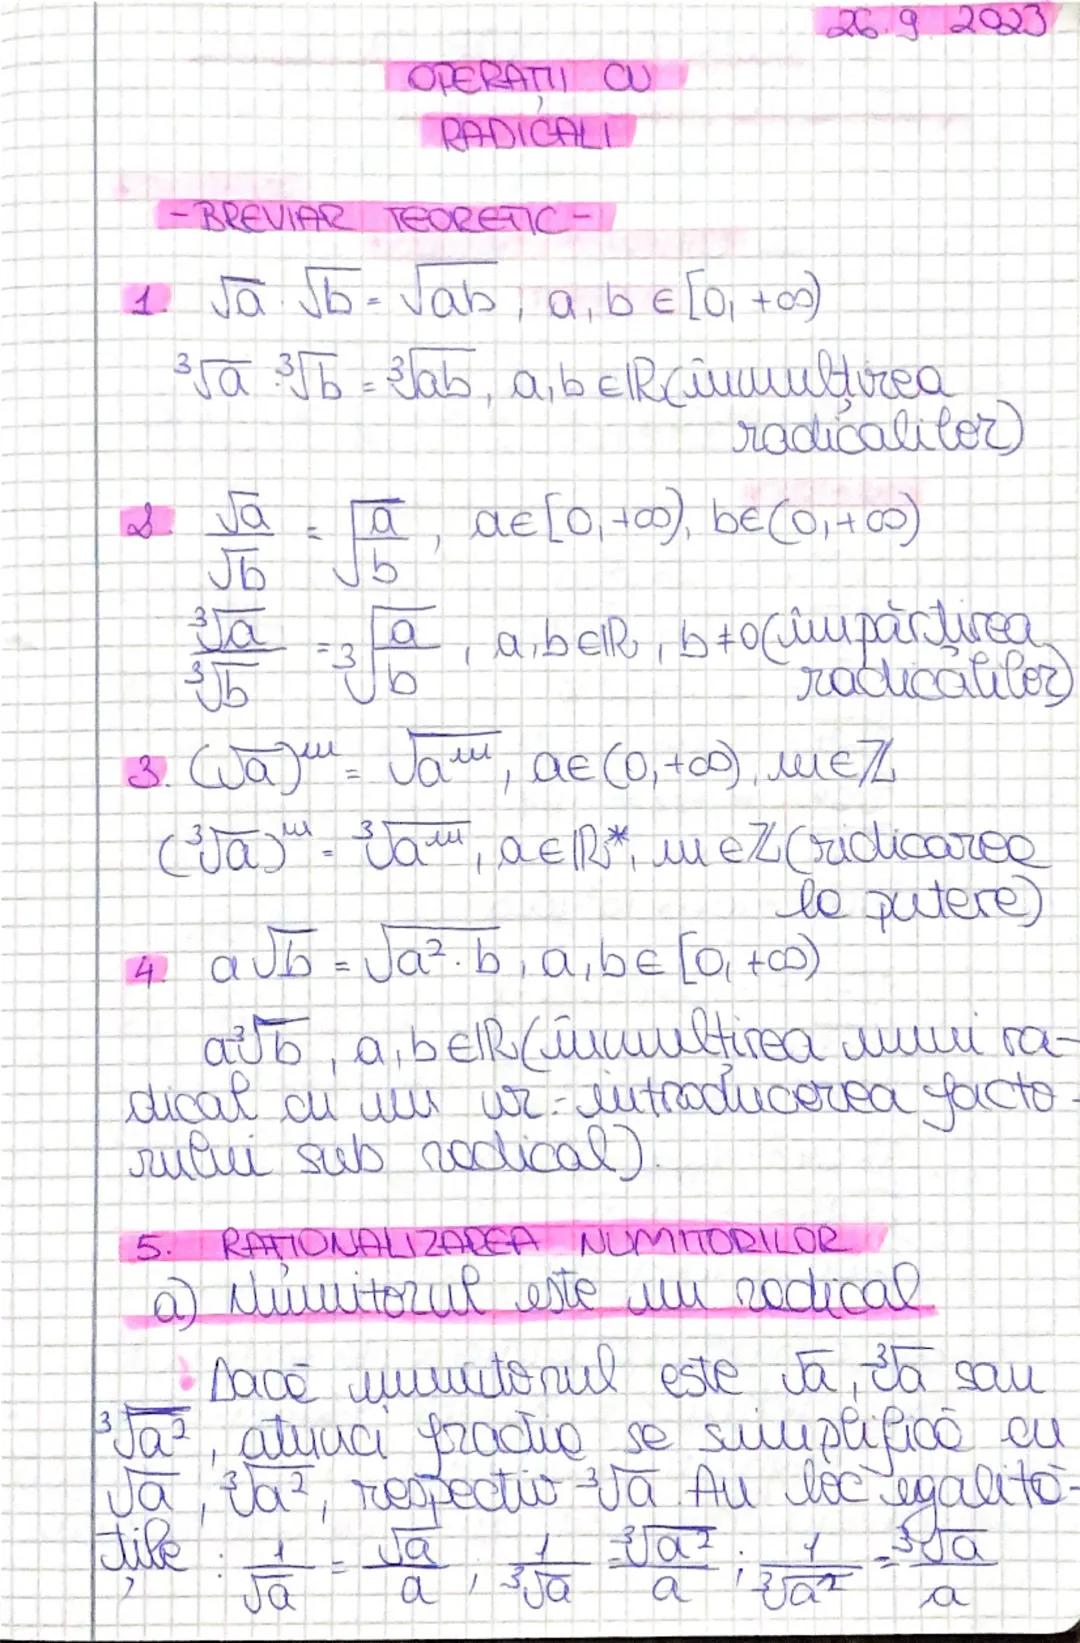 26.9.2023
OPERAȚII CU
RADICALI
-BREVIAR TEORETIC-
1. √a · √b = √ab, a, b ∈ [0, +∞)
³√a · ³√b = ³√ab, a, b ∈ ℝ (înmulțirea
radicalilor)
2. √a/√b = √(a/b), a ∈ [0, +∞), b ∈ (0, +∞)
³√a/³√b = ³√(a/b), a, b ∈ ℝ, b ≠ 0 (împărțirea
radicalilor)
3. (√a)ᵐ = √aᵐ, a ∈ (0, +∞), m ∈ ℤ
(³√a)ᵐ = ³√aᵐ, a ∈ ℝ*, m ∈ ℤ (ridicarea
la putere)
4. a√b = √a²·b, a, b ∈ [0, +∞)
a³√b, a, b ∈ ℝ (înmulțirea unui ra-
dical cu un nr.-introducerea facto-
rului sub radical).
5. RAȚIONALIZAREA NUMITORILOR
a) Numitorul este un radical
! Dacă numitorul este √a, ³√a sau
³√a², atunci fracția se simplifică cu
√a, ³√a², respectiv ³√a. Au loc egalită-
țile: 1/√a = √a/a; 1/³√a = ³√a²/a; 1/³√a² = ³√a/a